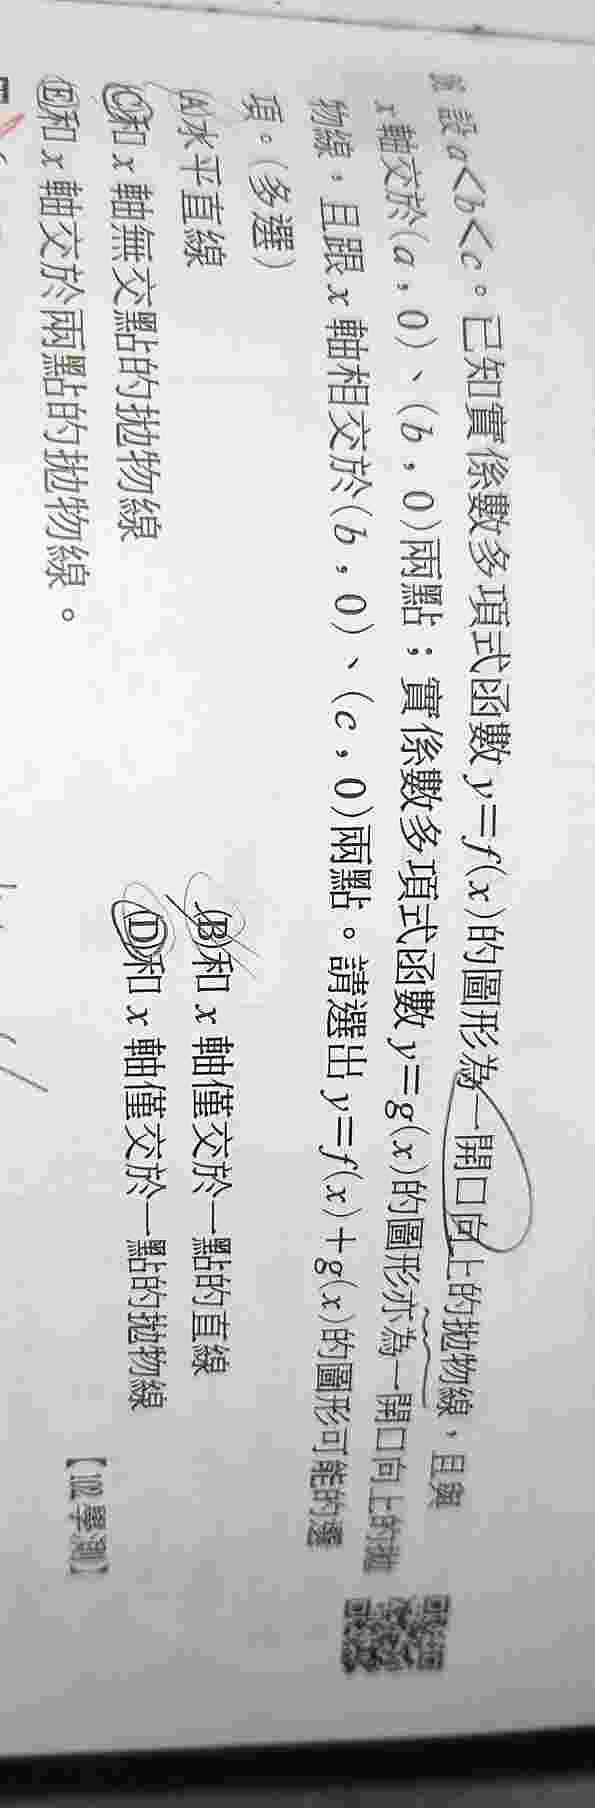 設a<b<c。已知實係數多項式函數y=f(x)的圖形為一開口向上的拋物線，且與
x軸交於(a，0)、(b，0)兩點；實係數多項式函數y=g(x)的圖形亦為一開口向上的拋
物線，且跟x軸相交於(b，0)、(c，0)兩點。請選出y=f(x)+g(x)的圖形可能的選
項。(多選)
(A)水平直線 (B)和x軸僅交於一點的直線
(C)和x軸無交點的拋物線 (D)和x軸僅交於一點的拋物線
(E)和x軸交於兩點的拋物線。 【102學測】